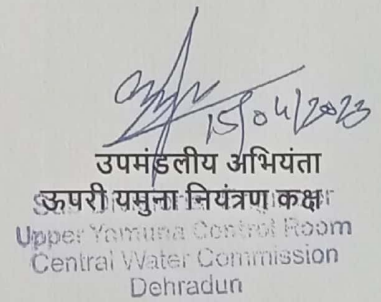 15/04/2023
उपमंडलीय अभियंता
ऊपरी यमुना नियंत्रण कक्ष
Upper Yamuna Control Room
Central Water Commission
Dehradun